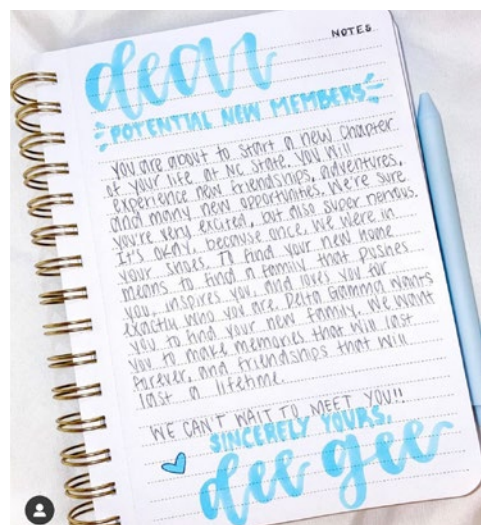 NOTES
dear
POTENTIAL NEW MEMBERS
you are about to start a new chapter
of your life at NC State. You will
experience new friendships, adventures,
and many new opportunities. We're sure
you're very excited, but also super nervous.
It's okay, because once, we were in
your shoes. To find your new home
means to find a family that pushes
you, inspires you, and loves you for
exactly who you are. Delta Gamma wants
you to find your new family. We want
you to make memories that will last
forever, and friendships that will
last a lifetime.
WE CAN'T WAIT TO MEET YOU!!
SINCERELY YOURS,
dee gee